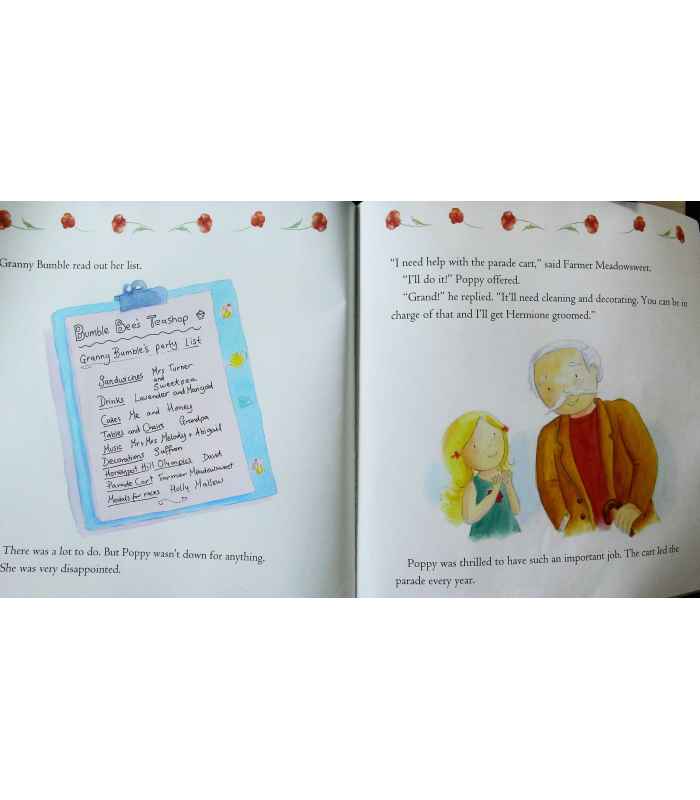 Granny Bumble read out her list.
Bumble Bee's Teashop
Granny Bumble's party List
Sandwiches Mrs Turner
and
Sweetpea
Drinks Lavender and Marigold
Cakes Me and Honey
Tables and Chairs Grandpa
Music Mr & Mrs Melody & Abigail
Decorations Saffron
Honeypot Hill Olympics David
Parade Cart Farmer Meadowsweet
Medals for races Holly Mallow
There was a lot to do. But Poppy wasn't down for anything.
She was very disappointed.
"I need help with the parade cart," said Farmer Meadowsweet.
"I'll do it!" Poppy offered.
"Grand!" he replied. "It'll need cleaning and decorating. You can be in
charge of that and I'll get Hermione groomed."
Poppy was thrilled to have such an important job. The cart led the
parade every year.